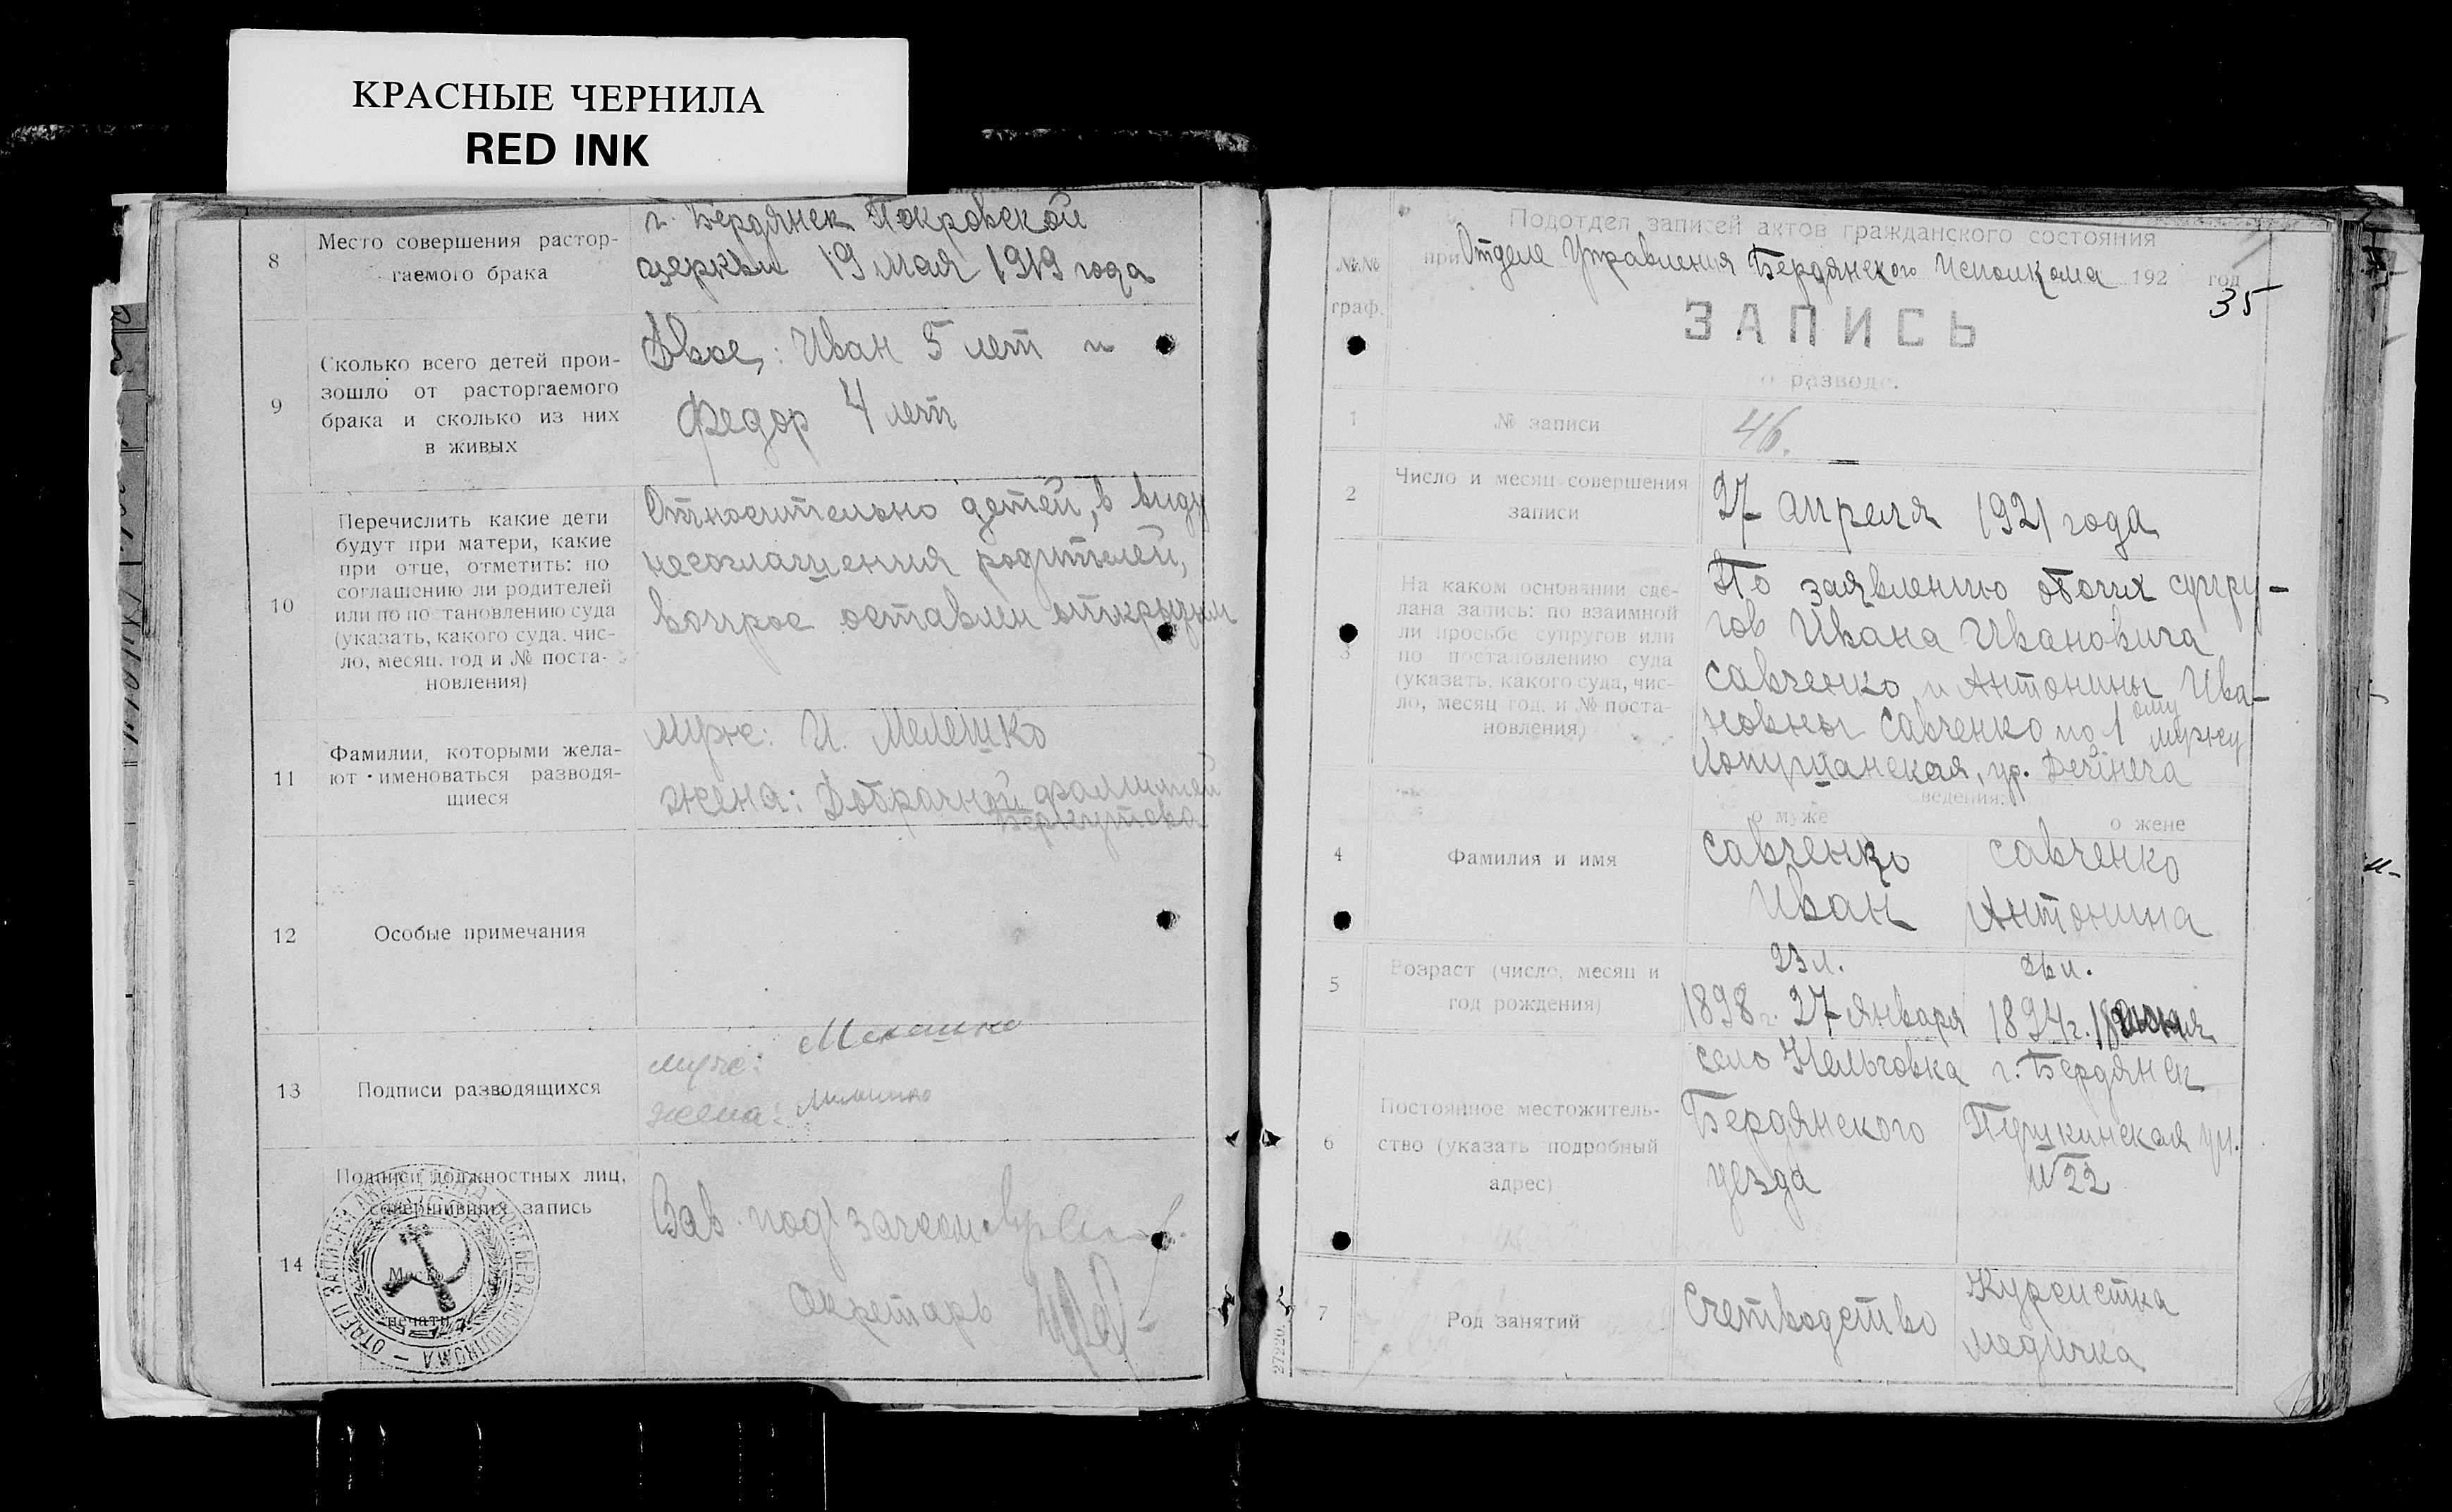 КРАСНЫЕ ЧЕРНИЛА
RED INK
8
Место совершения растор-
гаемого брака
г. Бердянск Покровской
церкви 19 мая 1919 года
9
Сколько всего детей прои-
зошло от расторгаемого
брака и сколько из них
в живых
Двое: Иван 5 лет и
Федор 4 лет
10
Перечислить какие дети
будут при матери, какие
при отце, отметить: по
соглашению ли родителей
или по постановлению суда
(указать, какого суда, чис-
ло, месяц, год и № поста-
новления)
Относительно детей, в виду
несоглашения родителей,
вопрос оставлен открытым
11
Фамилии, которыми жела-
ют именоваться разводя-
щиеся
муж: И. Мелешко
жена: Добрачной фамилией
12
Особые примечания
13
Подписи разводящихся
муж: Мелешко
жена: Мелешко
14
Подписи должностных лиц,
совершивших запись
Место
печати
Зав. под
Секретарь
№№
граф.
Подотдел записей актов гражданского состояния
при Отделе Управления Бердянского Исполкома 192 год
35
ЗАПИСЬ
о разводе.
1
№ записи
46.
2
Число и месяц совершения
записи
27 апреля 1921 года
3
На каком основании сде-
лана запись: по взаимной
ли просьбе супругов или
по постановлению суда
(указать, какого суда, чис-
ло, месяц год, и № поста-
новления)
По заявлению обоих супру-
гов Ивана Ивановича
Савченко и Антонины Ива-
новны Савченко по 1ому мужу
Лопушанская, ур.
Сведения:
о муже
о жене
4
Фамилия и имя
Савченко
Иван
Савченко
Антонина
5
Возраст (число, месяц и
год рождения)
23 л.
1898 г. 27 января
26 л.
1894 г.
6
Постоянное местожитель-
ство (указать подробный
адрес)
село Нельговка
Бердянского
уезда
г. Бердянск
Пушкинская ул.
№ 22
7
Род занятий
Счетводство
Курсистка
медичка
27220.